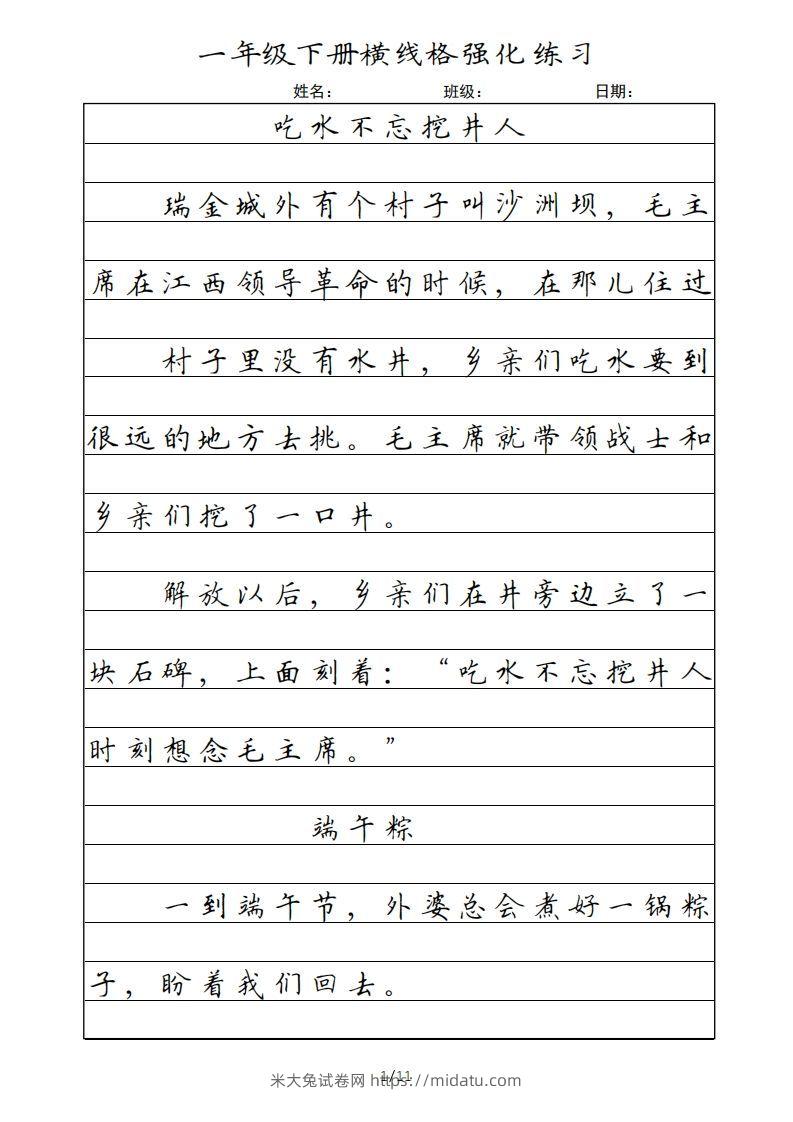 一年级下册横线格强化练习
姓名： 班级： 日期：
吃水不忘挖井人
瑞金城外有个村子叫沙洲坝，毛主
席在江西领导革命的时候，在那儿住过
村子里没有水井，乡亲们吃水要到
很远的地方去挑。毛主席就带领战士和
乡亲们挖了一口井。
解放以后，乡亲们在井旁边立了一
块石碑，上面刻着：“吃水不忘挖井人
时刻想念毛主席。”
端午粽
一到端午节，外婆总会煮好一锅粽
子，盼着我们回去。
1/11
米大兔试卷网 https://midatu.com